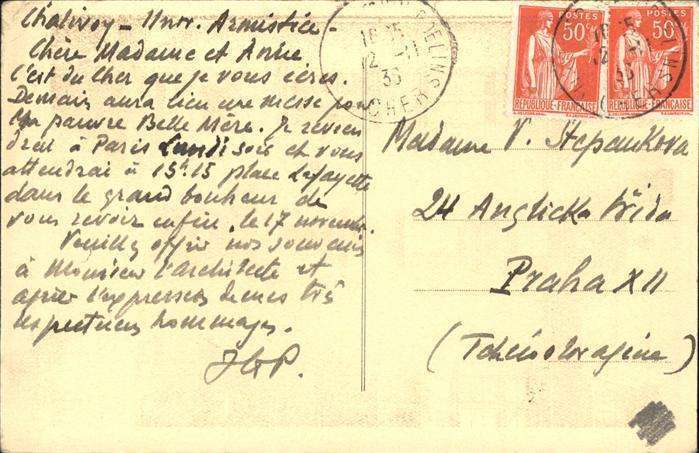 Chalivoy - 11 nov. Armistice -
Chère Madame et Amie
C'est du Cher que je vous écris.
Demain aura lieu une messe pour
ma pauvre Belle Mère. Je revien
drai à Paris Lundi soir et vous
attendrai à 15h15 place Lafayette
dans le grand bonheur de
vous revoir enfin, le 17 novembre.
Veuillez offrir nos souvenirs
à Monsieur l'architecte et
agréer l'expression de mes très
respectueux hommages.
Madame V. Stepankova
24 Anglicka třida
Praha XII
(Tchécoslovaquie)
12 -11
35
CHER
POSTES
50c
REPUBLIQUE FRANÇAISE
POSTES
50c
REPUBLIQUE FRANÇAISE